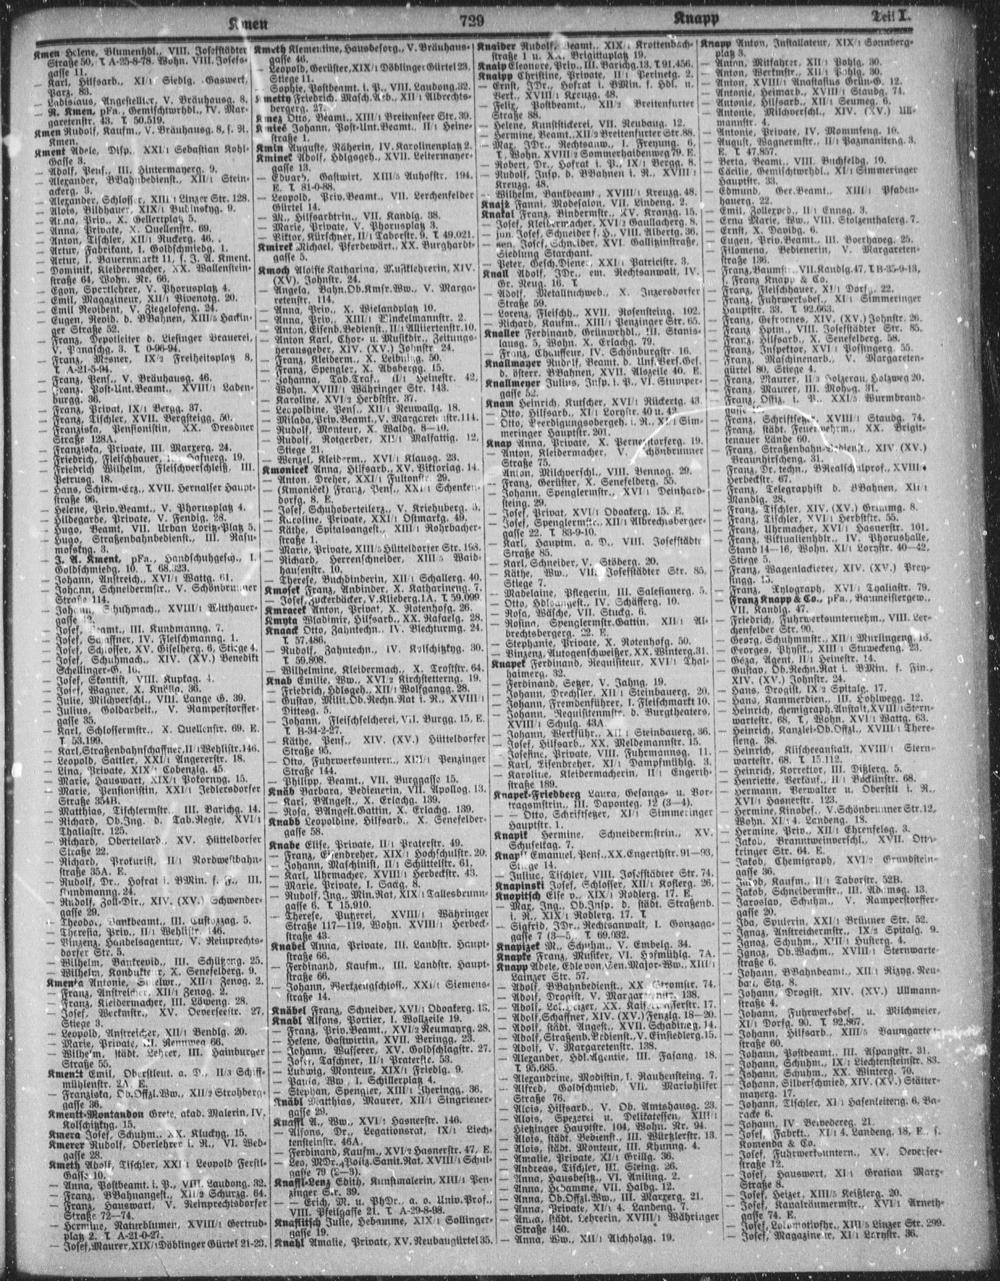 Kmen 729 Knapp Teil I.
Kmen Helene, Blumenhdl., VIII. Josefstädter
Straße 50, T A-25-8-78. Wohn. VIII. Josefs-
gasse 11.
— Karl, Hilfsarb., XI/1 Siedlg. Gaswerk,
Parz. 83.
— Ladislaus, Angestellter, V. Bräuhausg. 8,
— R. Kmen, pFa., Gemischtwrhdl., IV. Mar-
garetenstr. 43. T 50.519.
Kmen Rudolf, Kaufm., V. Bräuhausg. 8, s. R.
Kmen.
Kment Adele, Disp., XXI/1 Sebastian Kohl-
Gasse 3.
— Adolf, Pens., III. Hintermayerg. 9.
— Alexander, BBahnbedienst., XII/1 Stein-
ackerg. 3.
— Alexander, Schlosser, XII/1 Linzer Str. 128.
— Alois, Bildhauer, XIX/1 Budinskyg. 9.
— Anna, Priv., X. Gellertplatz 5.
— Anna, Private, X. Quellenstr. 69.
— Anton, Tischler, XII/1 Ruckerg. 46.
— Artur, Fabrikant, I. Goldschmiedg. 1.
— Artur, I. Bauernmarkt 11, s. J. A. Kment.
— Dominik, Kleidermacher, XX. Wallenstein-
straße 64, Wohn. Nr. 66.
— Egon, Sportlehrer, V. Phorusplatz 4.
— Emil, Magazineur, XII/1 Vivenotg. 20.
— Emil, Revident, V. Ziegelofeng. 24.
— Eugen, Revid. d. BBahnen, XIII/5 Hackin-
ger Straße 52.
— Franz, Depotleiter d. Liesinger Brauerei,
V. Panaschg. 3. T U-96-94.
— Franz, Mesner, IX/2 Freiheitsplatz 8,
T A-21-5-94.
— Franz, Pens., V. Bräuhausg. 46.
— Franz, Post-Unt.Beamt., XVIII/1 Laden-
burgg. 36.
— Franz, Privat, IX/1 Bergg. 37.
— Franz, Tischler, XVII. Bergsteigg. 50.
— Franziska, Pensionistin, XX. Dresdner
Straße 128A.
— Franziska, Private, III. Marxerg. 24.
— Friedrich, Fleischhauer, I. Hafnerg. 19.
— Friedrich Wilhelm, Fleischverschleiß, III.
Petrusg. 18.
— Hans, Schirm-Erz., XVII. Hernalser Haupt-
straße 96.
— Helene, Priv.Beamt., V. Phorusplatz 4.
— Hildegarde, Private, V. Fendig. 28.
— Hugo, Beamt., VII. Urban Loritz-Platz 5.
— Hugo, Straßenbahnbedienst., III. Rasu-
mofskyg. 3.
— J. A. Kment, pFa., Handschuhgesch., I.
Goldschmiedg. 10. T 68.323.
— Johann, Anstreich., XVI/1 Wattg. 61.
— Johann, Schneidermstr., V. Schönbrunner
Straße 114.
— Johann, Schuhmach., XVIII/1 Witthauer-
gasse 12.
— Josef, Beamt., III. Kundmanng. 7.
— Josef, Schaffner, IV. Fleischmanng. 1.
— Josef, Schlosser, XV. Giselherg. 6, Stiege 4.
— Josef, Schuhmach., XIV. (XV.) Benedikt
Schellinger-G. 16.
— Josef, Skontist, VIII. Kupkag. 4.
— Josef, Wagner, X. Knöllg. 36.
— Julie, Milchverschl., VIII. Lange G. 39.
— Julius, Goldarbeit., V. Ramperstorffer-
gasse 35.
— Karl, Schlossermstr., X. Quellenstr. 69. E.
T 53.199.
— Karl, Straßenbahnschaffner, II/1 Wehlistr. 146.
— Leopold, Sattler, XXI/1 Angererstr. 18.
— Lina, Private, XIX/1 Cobenzlg. 45.
— Marie, Hauswart, XIX/1 Pokornyg. 15.
— Marie, Pensionistin, XXI/2 Jedlersdorfer
Straße 354B.
— Matthias, Tischlermstr., III. Barichg. 14.
— Richard, Ob.Ing. d. Tab.Regie, XVI/1
Thaliastr. 125.
— Richard, Oberteilard., XV. Hütteldorfer
Straße 22.
— Richard, Prokurist, II/1 Nordwestbahn-
straße 35A. E.
— Rudolf, Dr., Hofrat i. BMin. f. F., III.
Kundmanng. 24.
— Rudolf, Zoll-Dir., XIV. (XV.) Schwender-
gasse 29.
— Theodor, Bankbeamt., III. Custozzag. 5.
— Theresia, Priv., II/1 Wehlistr. 146.
— Vinzenz, Handelsagentur, V. Reinprechts-
dorfer Str. 5.
— Wilhelm, Bankrevid., III. Schützeng. 25.
— Wilhelm, Kondukteur, X. Senefelderg. 9.
Kmenta Antonie, XII/1 Zenog. 2.
— Franz, Anstreicher, XII/1 Zenog. 2.
— Franz, Kleidermacher, III. Löweng. 28.
— Josef, Werkmstr., XV. Oeverseestr. 27,
Stiege 3.
— Leopold, Anstreicher, XII/1 Bendlg. 20.
— Marie, Private, III. Rennweg 66.
— Wilhelm, städt. Lehrer, III. Hainburger
Straße 55.
Kmentt Emil, Oberstleut. a. D., II/3 Schiff-
mühlenstr. 2A. E.
— Franziska, Ob.Offiz.Ww., XII/2 Strohberg-
gasse 36.
Kmentt-Montandon Grete, akad. Malerin, IV.
Kolschitzkyg. 15.
Kmera Josef, Schuhm., XX. Kluckyg. 15.
Kmerer Rudolf, Oberlehrer i. R., VI. Web-
gasse 28.
Kmeth Adolf, Tischler, XXI/1 Leopold Ferstl-
Gasse 10.
— Anna, Postbeamt. i. P., VIII. Laudong. 32.
— Franz, BBahnangest., XII/2 Schurzg. 64.
— Franz, Hauswart, V. Reinprechtsdorfer
Straße 72—74.
— Hermine, Naturblumen, XVIII/1 Gertrud-
platz 2. T A-21-0-27.
— Josef, Maurer, XIX/1 Döblinger Gürtel 21-23.
Kmeth Klementine, Hausbesorg., V. Bräuhaus-
gasse 46.
— Leopold, Gerüster, XIX/1 Döblinger Gürtel 23,
Stiege 11.
— Sophie, Postbeamt. i. P., VIII. Laudong. 32.
Kmetty Friedrich, Masch.Arb., XII/1 Albrechts-
bergerg. 27.
Kmez Otto, Beamt., XIII/1 Breitenseer Str. 39.
Kmieš Johann, Post-Unt.Beamt., II/1 Heine-
straße 1.
Kmin Auguste, Näherin, IV. Karolinenplatz 2.
Kminek Adolf, Hdlgogeh., XVII. Leitermayer-
gasse 13.
— Eduard, Gastwirt, XIII/5 Auhofstr. 194.
E. T 81-0-88.
— Leopold, Priv.Beamt., VII. Lerchenfelder
Gürtel 14.
— M., Hilfsarbtrin., VII. Kandlg. 38.
— Marie, Private, V. Phorusplatz 3.
— Viktor, Kürschner, II/1 Taborstr. 9. T 49.021.
Kmiret Michael, Pferdewärt., XX. Burghardt-
gasse 5.
Kmoch Aloisie Katharina, Musiklehrerin, XIV.
(XV.) Johnstr. 24.
— Angela, Bahn-Ob.Kmsr.Ww., V. Marga-
retenstr. 114.
— Anna, Priv., X. Wielandplatz 10.
— Anna, Priv., XIII/1 Linckelmannstr. 2.
— Anton, Eisenb.Bedienst., II/1 Alliiertenstr. 10.
— Anton Karl, Chor- u. Musikdir., Zeitungs-
herausgeber, XIV. (XV.) Johnstr. 24.
— Franz, Kleiderm., X. Leibnizg. 50.
— Franz, Spengler, X. Absbergg. 15.
— Johanna, Tab.Traf., II/1 Heinestr. 42,
Wohn. XVIII/1 Währinger Str. 143.
— Karoline, XVI/2 Herbststr. 37.
— Leopoldine, Pens., XII/1 Neuwallg. 18.
— Milada, Priv.Beamt., V. Margaretenstr. 114.
— Rudolf, Monteur, X. Waldg. 8—10.
— Rudolf, Rotgerber, XII/1 Malfattig. 12,
Stiege 21.
— Wenzel, Kleiderm., XVI/1 Klausg. 23.
Kmonicek Anna, Hilfsarb., XV. Viktoriag. 14.
— Anton, Dreher, XXI/1 Fultonstr. 29.
— (Kmoniček) Franz, Pens., XXI/1 Schenken-
dorfg. 8. E.
— Josef, Schuhoberteilerz., V. Kriehuberg. 5.
— Karoline, Private, XXI/1 Ostmarkg. 49.
— Käthe, Spitalsangest., XIII/1 Rohrbacher-
straße 1.
— Marie, Private, XIII/5 Hütteldorfer Str. 198.
— Richard, Herrenschneider, XIII/5 Waid-
hausenstr. 10.
— Therese, Buchbinderin, XII/1 Schallerg. 40.
Kmoset Franz, Anbinder, X. Katharineng. 7.
— Josef, Zuckerbäcker, V. Klieberg. 1A. T 59.099.
Kmracet Anton, Privat, X. Rotenhofg. 26.
Kmyta Wladimir, Hilfsarb., XX. Rafaelg. 28.
Knaack Otto, Zahntechn., IV. Blechturmg. 24.
T 57.486.
— Rudolf, Zahntechn., IV. Kolschitzkyg. 30.
T 59.808.
— Wilhelmine, Kleidermach., X. Troststr. 64.
Knab Emilie, Ww., XVI/1 Kirchstetterng. 19.
— Friedrich, Hdlsgeh., XII/1 Wolfgangg. 28.
— Gustav, Milit.Ob.Rechn.Rat i. R., XVIII/1
Dittesg. 5.
— Johann, Fleischselcherei, VII. Burgg. 15. E.
T B-34-2-27.
— Käthe, Pens., XIV. (XV.) Hütteldorfer
Straße 95.
— Otto, Fuhrwerksuntern., XIII/1 Penzinger
Straße 144.
— Philipp, Beamt., VII. Burggasse 15.
Knäb Barbara, Bedienerin, VII. Apollog. 13.
— Karl, BAngest., X. Erlachg. 139.
— Karl, BAngest.Gattin, X. Erlachg. 139.
Knabb Leopoldine, Hilfsarb., X. Senefelder-
gasse 58.
Knabe Elise, Private, II/1 Praterstr. 49.
— Franz, Eisendreher, XIX/1 Hochschulstr. 20.
— Johann, Maschinist, II/1 Schüttelstr. 61.
— Karl, Uhrmacher, XVIII/1 Herbeckstr. 43.
— Marie, Private, I. Seilerg. 8.
— Rudolf, Ing., Min.Rat, XIX/1 Tallesbrunn-
gasse 6. T 15.910.
— Therese, Putzerei, XVIII/1 Währinger
Straße 117—119, Wohn. XVIII/1 Herbeck-
straße 43.
Knabel Anna, Private, III. Landstr. Haupt-
straße 66.
— Ferdinand, Kaufm., III. Landstr. Haupt-
straße 66.
— Johann, Werkzeugschloss., XXI/4 Siemens-
straße 14.
Knäbel Franz, Schneider, XVI/1 Odoakerg. 13.
Knabl Alfons, Portier, I. Wollzeile 19.
— Franz, Priv.Beamt., XVI/2 Neumayrg. 28.
— Helene, Gastwirtin, XVII. Beringg. 23.
— Johann, Wasserer, XV. Goldschlagstr. 27.
— Josef, Taschner, II/1 Praterstr. 53.
— Ludwig, Monteur, XIX/1 Friedlg. 9.
— Paula, Ww., I. Schillerplatz 4.
— Stephan, Spengler, XIII/1 Jheringg. 36.
Knäbl Matthias, Maurer, XII/1 Singriener-
gasse 29.
Knaffl A., Ww., XVI/1 Hasnerstr. 146.
— Alfons, Dr., Legationsrat, IX/1 Liech-
tensteinstr. 46A.
— Ferdinand, Kaufm., XVI/2 Hasnerstr. 47. E.
— Leo, MDr., Poliz.Sanit.Rat, XVIII/1 Schul-
gasse 79
Knaffl-Lenz Edith, Kunstmalerin, XIII/1 Pen-
zinger Str. 39.
— Erich, M. u. PhDr., a. o. Univ.Prof.,
VIII. Pfeilgasse 21. T A-29-8-98.
Knaflitsch Julie, Hebamme, XIX/1 Sollinger-
gasse 19.
Knahl Amalie, Private, XV. Neubaugürtel 35.
Knaider Rudolf, Beamt., XIX/1 Krottenbach-
straße 1 u. XX. Brigittaplatz 19.
Knaip Eleonore, Priv., III. Barichg. 13. T 91.456.
Knaipp Christine, Private, II/1 Perinetg. 2.
— Ernst, JDr., Hofrat i. BMin. f. Hdl. u.
Verk., XVIII/1 Kreuzg. 48.
— Felix, Postbeamt., XII/2 Breitenfurter
Straße 88.
— Helene, Kunststickerei, VII. Neubaug. 12.
— Hermine, Beamt., XII/2 Breitenfurter Str. 88.
— Max, JDr., Rechtsanw., I. Freyung 6,
T, Wohn. XVIII/2 Sommerhaidenweg 79. E.
— Robert, Dr., Hofrat i. P., IX/1 Bergg. 8.
— Rudolf, Insp. d. BBahnen i. R., XVIII/1
Kreuzg. 48.
— Wilhelm, Bankbeamt., XVIII/1 Kreuzg. 48.
Knajz Fanni, Modesalon, VII. Lindeng. 2.
Knakal Franz, Bindermstr., XV. Kranzg. 15.
— Josef, Kleidermacher, XVI/2 Gaullacherg. 8.
— jun. Josef, Schneider s. H., VII. Alberig. 36.
— sen. Josef, Schneider, XVI. Gallitzinstraße,
Siedlung Starchant.
— Peter, Gesch.Diener, XXI/1 Patrizistr. 3.
Knall Adolf, JDr., em. Rechtsanwalt, IV.
Gr. Neug. 16. T
— Adolf, Metallmischwerk, X. Inzersdorfer
Straße 59.
— Lorenz, Fleischh., XVII. Rosensteing. 102.
— Richard, Kaufm., XIII/1 Penzinger Str. 65.
Knaller Ferdinand, Grünwrhdl., III. Stanis-
lausg. 5, Wohn. X. Erlachg. 79.
— Franz, Chauffeur, IV. Schönburgstr. 16.
Knallmayer Rudolf, Beamt. d. Unf.Vers.Ges.
d. österr. BBahnen, XVII. Alszeile 40. E.
Knallmeyer Julius, Insp. i. P., VI. Stumper-
gasse 52.
Knam Heinrich, Kutscher, XVI/1 Rückertg. 43.
— Otto, Hilfsarb., XI/1 Lorystr. 40 u. 42.
— Otto, Beerdigungsobergeh. i. R., XI/1 Sim-
meringer Hauptstr. 201.
Knap Anna, Private, X. Pernerstorferg. 19.
— Anton, Kleidermacher, V. Schönbrunner
Straße 75.
— Anton, Milchverschl., VIII. Bennog. 29.
— Franz, Gerüster, X. Senefelderg. 55.
— Johann, Spenglermstr., XVI/1 Deinhard-
steing. 29.
— Josef, Privat, XVI/1 Odoakerg. 15. E.
— Josef, Spenglermstr., XII/1 Albrechtsberger-
gasse 22. T 83-9-10.
— Karl, Hauptm. a. D., VIII. Josefstädter
Straße 85.
— Karl, Schneider, V. Stöberg. 20.
— Käthe, Ww., VIII. Josefstädter Str. 85,
Stiege 7.
— Madelaine, Pflegerin, III. Salesianerg. 5.
— Otto, Hdlsangest., IV. Schäfferg. 10.
— Rosa, Wäsche, VII. Stuckg. 6.
— Rosina, Spenglermstr.Gattin, XII/1 Al-
brechtsbergerg. 22. E.
— Stephanie, Private, X. Rotenhofg. 50.
— Vinzenz, Autogenschweißer, XX. Winterg. 31.
Knapek Ferdinand, Requisiteur, XVI/1 Thal-
haimerg. 32.
— Ferdinand, Setzer, V. Jahng. 19.
— Johann, Drechsler, XII/1 Steinbauerg. 20.
— Johann, Fremdenführer, I. Fleischmarkt 10.
— Johann, Requisitenmstr. d. Burgtheaters,
XVIII/1 Schulg. 43A.
— Johann, Werkführ., XII/1 Steinbauerg. 36.
— Josef, Hilfsarb., XX. Meldemannstr. 15.
— Josefine, Private, VIII. Fuhrmannsg. 11.
— Karl, Eisendreher, XI/1 Dampfmühlg. 3.
— Karoline, Kleidermacherin, II/1 Engerth-
straße 189.
Knapek-Friedberg Laura, Gesangs- u. Vor-
tragsmstrin., III. Daponteg. 12 (3—4).
— Otto, Schriftsetzer, XI/1 Simmeringer
Hauptstr. 1.
Knapik Hermine, Schneidermstrin., XV.
Schuselkag. 7.
Knapil Emanuel, Pens., XX. Engerthstr. 91—93,
Stiege 14.
— Julius, Tischler, VIII. Josefstädter Str. 74.
Knapinski Josef, Schlosser, XII/1 Koflerg. 26.
Knapitsch Else v., XIX/1 Roblerg. 17. E.
— Max, Ing., Ob.Insp. d. städt. Straßenb.
i. R., XIX/1 Roblerg. 17. T
— Sigfrid, JDr., Rechtsanwalt, I. Gonzaga-
gasse 7 (3—5). T 69.032.
Knapizek M., Schuhm., V. Embelg. 34.
Knapke Franz, Musiker, VI. Hofmühlg. 7A.
Knapp Adele, Edle von, Gen.Major-Ww., XIII/1
Lainzer Str. 57.
— Adolf, BBahnbedienst., XX. Stromstr. 74.
— Adolf, Drogist, V. Margaretenstr. 138.
— Adolf, XX. Kaiserwasserstr. 17.
— Adolf, Schaffner, XIV. (XV.) Fenzlg. 18—20.
— Adolf, städt. Angest., XVII. Schadinag. 14.
— Adolf, Straßenb.Bedienst., V. Einsiedlerg. 15.
— Adolf, V. Margaretenstr. 138.
— Alexander, Hdl.Agentie, III. Fasang. 18.
T 95.685.
— Alexandrine, Modistin, I. Rauhensteing. 7.
— Alfred, Goldschmied, VII. Mariahilfer
Straße 76.
— Alois, Hilfsarb., V. Ob. Amtshausg. 23.
— Alois, Spezerei u. Delikatessen, XIII/1
Hietzinger Hauptstr. 104, Wohn. Nr. 94.
— Alois, städt. Bedienst., III. Würtzlerstr. 13.
— Alois, städt. Monteur, III. Khunng. 4.
— Amalie, Private, XII/1 Grillg. 36.
— Andreas, Tischler, III. Steing. 26.
— Anna, Hausbesitz., VI. Aniling. 2.
— Anna, Hebamme, VII. Halbg. 12.
— Anna, Ob.Offzl.Ww., III. Marxerg. 21.
— Anna, Private, XI/1 4. Landeng. 7.
— Anna, städt. Lehrerin, XVIII/1 Währinger
Straße 140.
— Anna, Ww., XII/1 Aichholzg. 19.
Knapp Anton, Installateur, XIX/1 Sonnberg-
platz 3.
— Anton, Mitfahrer, XII/1 Pohlg. 30.
— Anton, Werkmstr., XII/1 Pohlg. 30.
— Anton, XVIII/1 Anastasius Grün-G. 12.
— Antonie, Heimarb., XVIII/1 Staudg. 74.
— Antonie, Hilfsarb., XII/1 Seumeg. 6.
— Antonie, Milchverschl., XIV. (XV.) Ull-
mannstr. 4.
— Antonie, Private, IV. Mommseng. 10.
— August, Wagnermstr., II/1 Pazmaniteng. 3.
E. T 47.857.
— Berta, Beamt., VIII. Buchfeldg. 19.
— Cäcilie, Gemischtwrhdl., XI/1 Simmeringer
Hauptstr. 33.
— Edmund, Ger.Beamt., XIII/1 Pfaden-
hauerg. 22.
— Emil, Zolloxped., II/1 Ennsg. 3.
— Erna Marie, Ww., VIII. Stolzenthalerg. 7.
— Ernst, X. Davidg. 6.
— Eugen, Priv.Beamt., III. Boerhaveg. 25.
— Filomena, Bedienerin, V. Margareten-
straße 136.
— Franz, Baumstr., VII. Kandlg. 47, T B-35-9-13,
s. Franz Knapp & Co.
— Franz, Fleischhauer, XII/1 Dörfg. 22.
— Franz, Fuhrwerksbes., XI/1 Simmeringer
Hauptstr. 33. T 92.663.
— Franz, Gefrornes, XIV. (XV.) Johnstr. 26.
— Franz, Hptm., VIII. Josefstädter Str. 85.
— Franz, Hilfsarb., X. Senefelderg. 58.
— Franz, Inspektor, XVI/1 Possingerg. 55.
— Franz, Maschinenarb., V. Margareten-
gürtel 80, Stiege 4.
— Franz, Maurer, II/2 Holzerau, Holzweg 20.
— Franz, Maurer, III. Mohsg. 31.
— Franz, Offiz. i. P., XXI/5 Wurmbrand-
gasse
— Franz, Schriftsetzer, XVIII/1 Staudg. 74.
— Franz, städt. Feuerwehrm., XX. Brigit-
tenauer Lände 60.
— Franz, Straßenbahnbedienst., XIV. (XV.)
Braunhirscheng. 31.
— Franz, Dr. techn., BRealschulprof., XVIII/1
Herbeckstr. 67.
— Franz, Telegraphist d. BBahnen, XII/1
Mandlg. 28.
— Franz, Tischler, XIV. (XV.) Grimmg. 8.
— Franz, Tischler, XVI/1 Herbststr. 55.
— Franz, Uhrmacher, XVI/1 Hasnerstr. 101.
— Franz, Viktualienhdlr., IV. Phorushalle,
Stand 14—16, Wohn. XI/1 Lorystr. 40—42,
Stiege 5.
— Franz, Wagenlackierer, XIV. (XV.) Prey-
singg. 15.
— Franz, Xylograph, XVI/1 Thaliastr. 79.
— Franz Knapp & Co., pFa., Baumeistergew.,
VII. Kandlg. 47.
— Friedrich, Fuhrwerksunternehm., VIII. Ler-
chenfelder Str. 90.
— Georg, Schuhmstr., XII/1 Murlingeng. 16.
— Georges, Physik., XIII/1 Stuweckeng. 23.
— Géza, Agent, II/1 Heinestr. 14.
— Gustav, Ob.Rechn.Rat i. BMin. f. Fin.,
XIV. (XV.) Johnstr. 24.
— Hans, Drogist, IX/2 Spitalg. 17.
— Hans, Kammerdien., III. Hohlwegg. 12.
— Heinrich, chemigraph. Anstalt, XVIII/1 Stern-
wartestr. 68, T, Wohn. XVI/1 Wattg. 63.
— Heinrich, Kanzlei-Ob.Offzl., XVIII/1 There-
sieng. 38.
— Heinrich, Klischeeanstalt, XVIII/1 Stern-
wartestr. 68. T 15.112.
— Heinrich, Korrektor, III. Dißlerg. 5.
— Henriette, Verkäuf., II/1 Böcklinstr. 68.
— Hermann, Verwalter u. Oberstl. i. R.,
XVI/1 Hasnerstr. 123.
— Hermine, Kinobes., V. Schönbrunner Str. 12,
Wohn. XI/1 4. Landeng. 18.
— Hermine, Priv., XII/1 Ehrenfelsg. 3.
— Jakob, Branntweinwirt., XVII. Otta-
kringer Str. 64. E.
— Jakob, Chemigraph, XVI/2 Grundstein-
gasse 36.
— Jakob, Kaufm., II/1 Taborstr. 52B.
— Jakob, Schneidermstr., III. Adamsg. 13.
— Jaroslav, Schuhm., V. Ramperstorffer-
gasse 20.
— Ida, Spulerin, XXI/1 Brünner Str. 52.
— Ignaz, Anstreichermstr., IX/2 Spitalg. 9.
— Ignaz, Schuhm., XII/1 Hufterg. 4.
— Ignaz, Ob.Wachm., XVIII/1 Wartmann-
straße 6.
— Johann, BBahnbeamt., XII/1 Rizyg. Neu-
bau, Stg. 8.
— Johann, Drogist, XIV. (XV.) Ullmann-
straße 4.
— Johann, Fuhrwerksbes. u. Milchmeier,
XI/1 Dorfg. 90. T 92.867.
— Johann, Hilfsarb., XIII/5 Baumgartner
Straße 60.
— Johann, Postbeamt., III. Aspangstr. 31.
— Johann, Schuhm., IX/1 Liechtensteinstr. 83.
— Johann, Schuhm., XX. Winterg. 79.
— Johann, Silberschmied, XIV. (XV.) Stätter-
mayerg. 17.
— Johann, Tischler, XI/1 Hasenleiteng. 6, Ba-
racke 6.
— Johann, IV. Belvedereg. 21.
— Josef, Fabrkt., XI/1 4. Landeng. 18, E., s.
Konenda & Co.
— Josef, Fuhrwerksuntern., XV. Oeversee-
straße 12.
— Josef, Hauswart, XI/1 Gratian Marx-
Straße 8.
— Josef, Heizer, XIII/5 Keißlerg. 20.
— Josef, Kanalräumermstr., XVI/1 Arneth-
gasse 74. E.
— Josef, Lokomotivfhr., XIII/5 Linzer Str. 299.
— Josef, Magazineur, XI/1 Lorystr. 36.